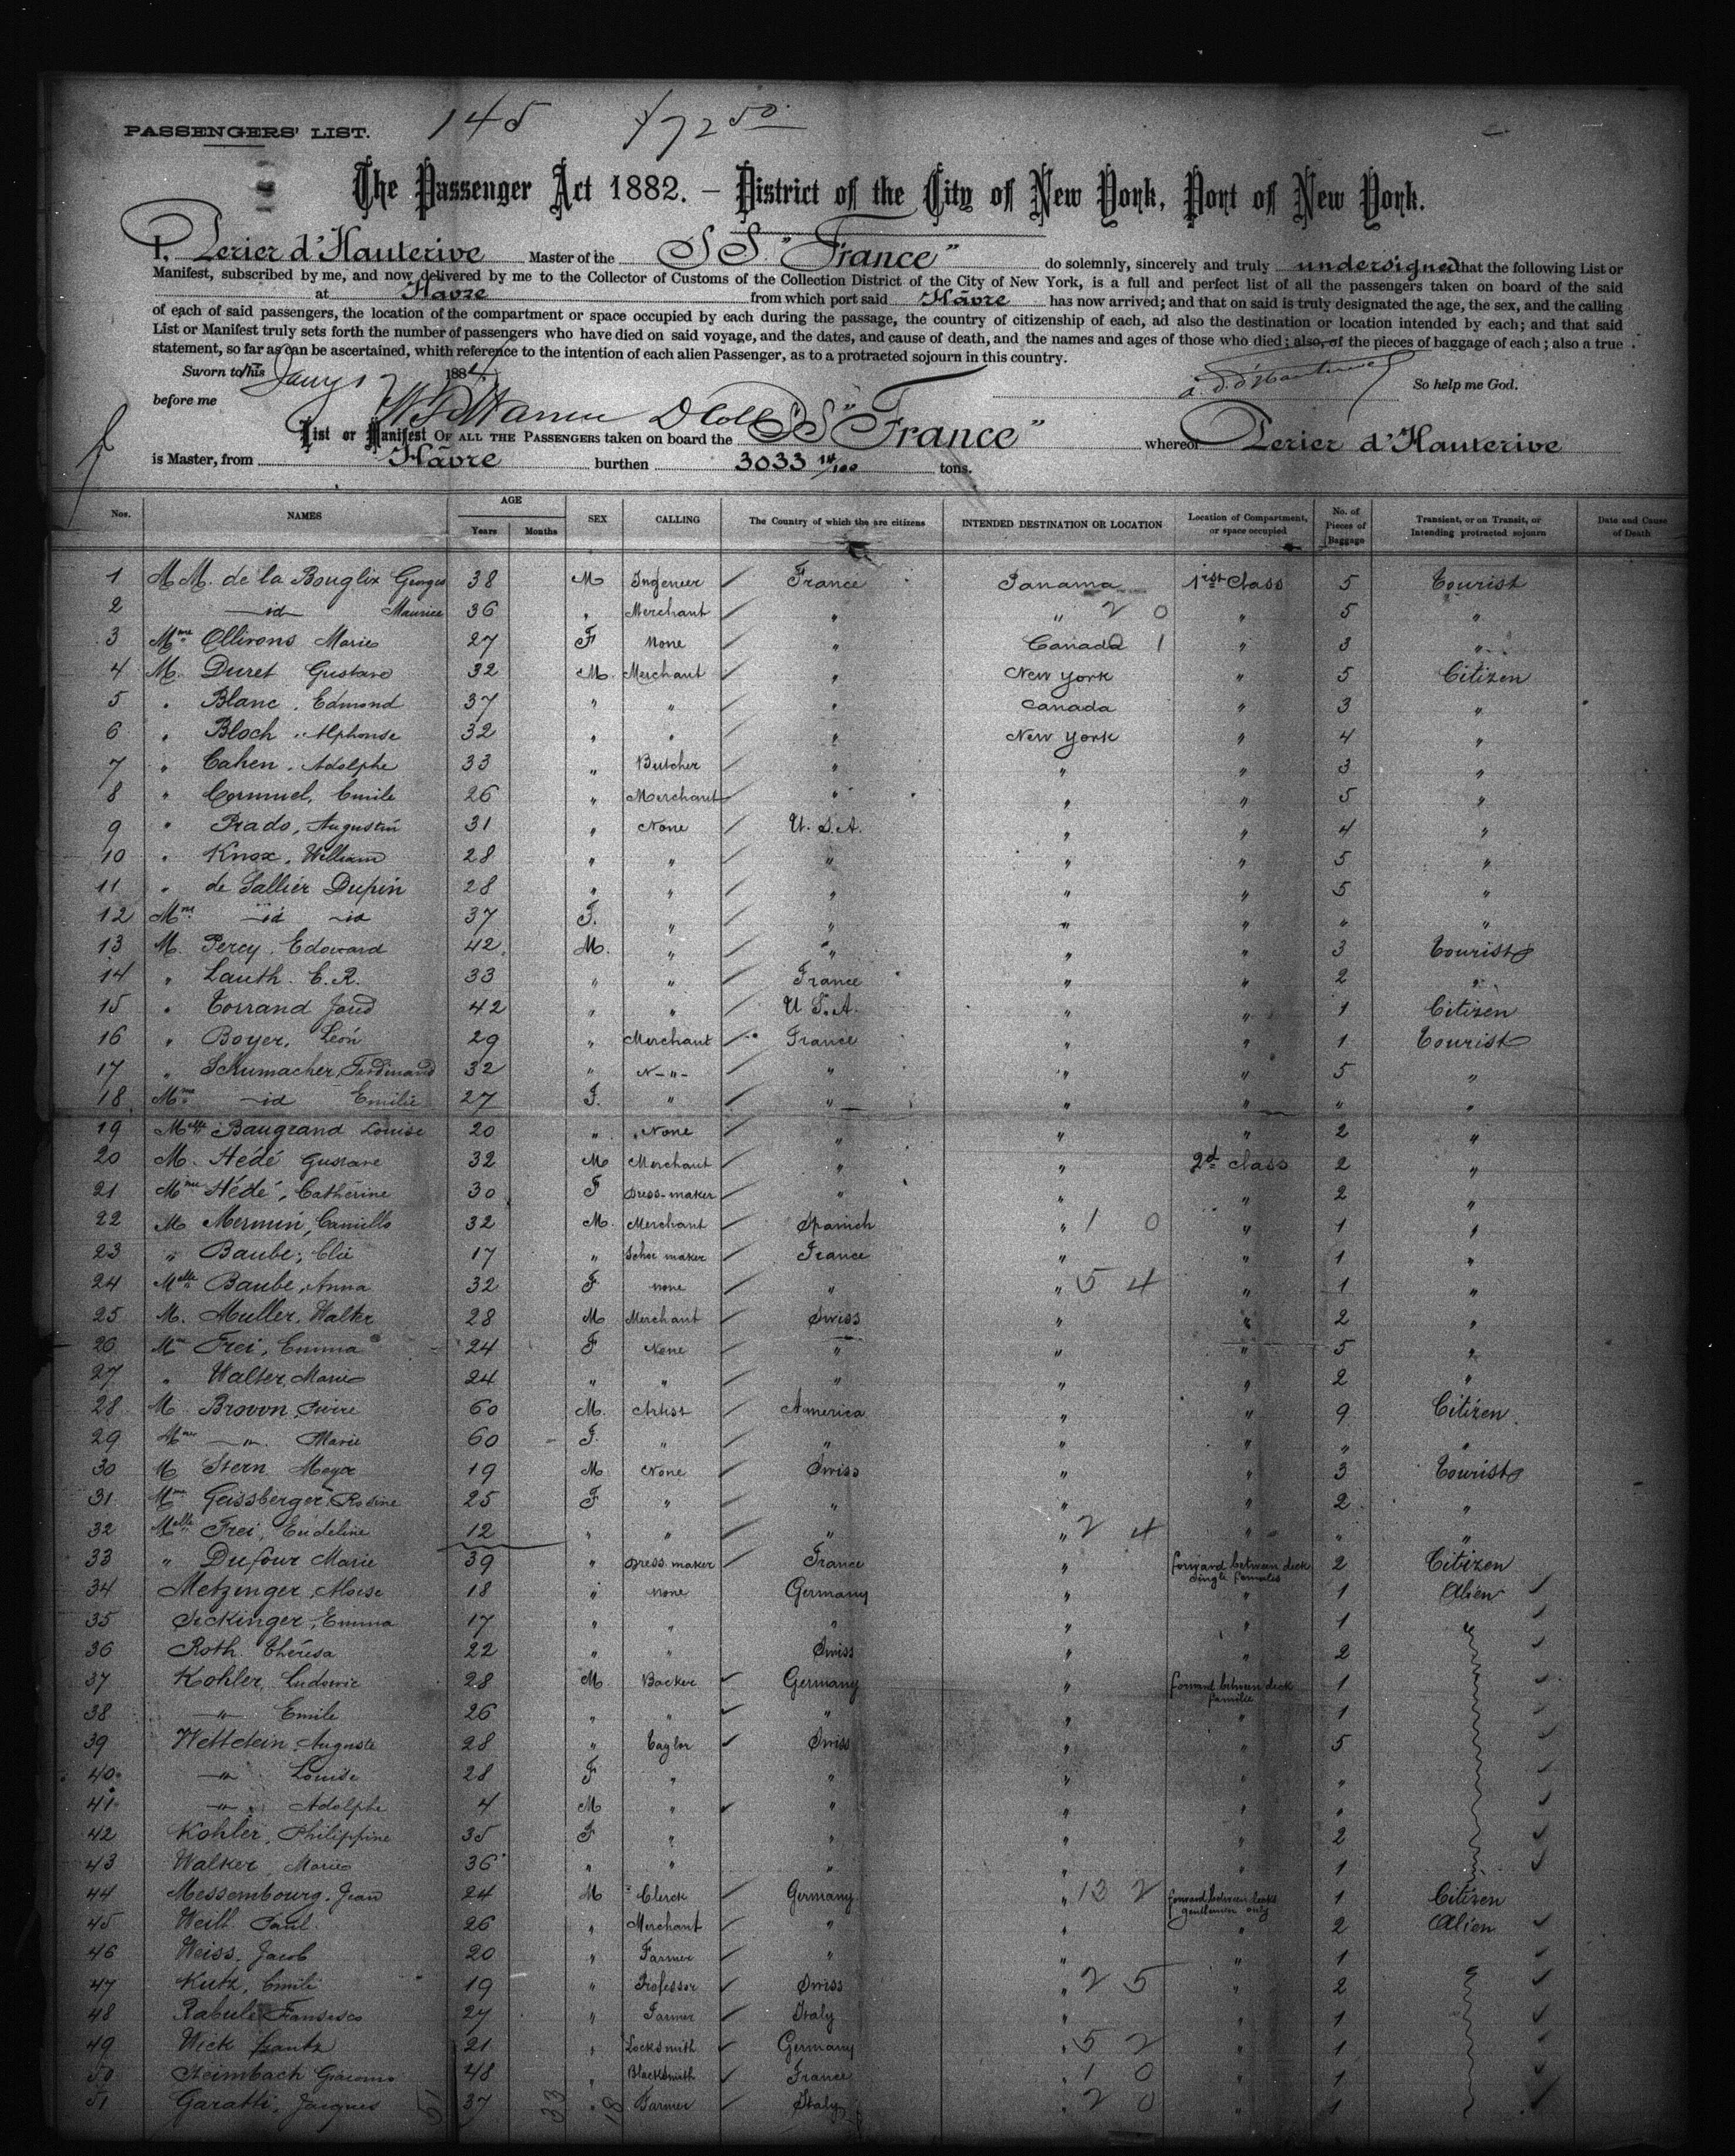 PASSENGERS' LIST. 145 $72 50
The Passenger Act 1882. – District of the City of New York, Port of New York.
I, Perier d'Hauterive Master of the SS "France" do solemnly, sincerely and truly undersigned that the following List or
Manifest, subscribed by me, and now delivered by me to the Collector of Customs of the Collection District of the City of New York, is a full and perfect list of all the passengers taken on board of the said
at Hâvre from which port said Hâvre has now arrived; and that on said is truly designated the age, the sex, and the calling
of each of said passengers, the location of the compartment or space occupied by each during the passage, the country of citizenship of each, ad also the destination or location intended by each; and that said
List or Manifest truly sets forth the number of passengers who have died on said voyage, and the dates, and cause of death, and the names and ages of those who died; also, of the pieces of baggage of each; also a true
statement, so far as can be ascertained, whith reference to the intention of each alien Passenger, as to a protracted sojourn in this country.
Sworn to this 1884
So help me God.
before me
List or Manifest OF ALL THE PASSENGERS taken on board the SS "France" whereof Perier d'Hauterive
is Master, from Hâvre burthen 3033 14/100 tons.
Nos. NAMES AGE Years Months SEX CALLING The Country of which the are citizens INTENDED DESTINATION OR LOCATION Location of Compartment, or space occupied No. of Pieces of Baggage Transient, or on Transit, or Intending protracted sojourn Date and Cause of Death
1 M M. de la Bouglix Georges 38 M Ingeneer France Panama 1rst Class 5 Tourist
2 —id— Maurice 36 " Merchant " " 2 0 " 5 "
3 Mme Ollivons Marie 27 F None " Canada 1 " 3 "
4 M. Duret Gustave 32 M. Merchant " New York " 5 Citizen
5 " Blanc, Edmond 37 " " " Canada " 3 "
6 " Bloch, Alphonse 32 " " " New York " 4 "
7 " Cahen, Adolphe 33 " Butcher " " " 3 "
8 " Cornuel, Emile 26 " Merchant " " " 5 "
9 " Prado, Augustin 31 " None U. S. A. " " 4 "
10 " Knox, William 28 " " " " " 5 "
11 " de Sallier Dupin 28 " " " " " 5 "
12 Mme —id —id 37 F. " " " " " "
13 M. Percy, Edouard 42 M. " " " " 3 Tourist
14 " Lauth. E. R. 33 " " France " " 2 "
15 " Torrand 42 " " U. S. A. " " 1 Citizen
16 " Boyer, Léon 29 " Merchant France " " 1 Tourist
17 " Schumacher, Ferdinand 32 " —"— " " " 5 "
18 Mme —id Emilie 27 F. " " " " " "
19 Melle Baugrand Louise 20 " None " " " 2 "
20 M. Hédé Gustave 32 M Merchant " " 2d class 2 "
21 Mme Hédé, Cathérine 30 F Dress-maker " " " 2 "
22 M Mermin, Camille 32 M. Merchant Spanich " 1 0 " 1 "
23 " Baube, Elie 17 " Schoe maker France " " 1 "
24 Melle Baube, Anna 32 F none " " 5 4 " 1 "
25 M. Muller, Walter 28 M Merchant Swiss " " 2 "
26 Mme Frei, Emma 24 F None " " " 5 "
27 " Walter, Marie 24 " " " " " 2 "
28 M. Brovon, Pierre 60 M. Artist America " " 9 Citizen
29 Mme —"— Marie 60 F. " " " " " "
30 M Stern Meyer 19 M None Swiss " " 3 Tourist
31 Mme Geissberger, Rosine 25 F " " " " 2 "
32 Melle Frei, Eudeline 12 " " " " 2 4 " " "
33 " Dufour Marie 39 " Dress. maker France " forward between deck single females 2 Citizen
34 Metzinger, Aloise 18 " none Germany " " 1 Alien
35 Sickinger, Emma 17 " " " " " 1
36 Roth Thérésa 22 " " Swiss " " 2
37 Kohler, Ludowic 28 M. Backer Germany " forward between deck familie 1
38 —"— Emile 26 " " " " " 1
39 Wettstein, Auguste 28 " Taylor Swiss " " 5
40 —"— Louise 28 F " " " " "
41 —"— Adolphe 4 M " " " " "
42 Kohler, Philippine 35 F " " " " 2
43 Walker, Marie 36 " " " " " 1
44 Messembourg, Jean 24 M Clerck Germany " 13 2 forward between decks gentlemen only 1 Citizen
45 Weill Paul 26 " Merchant " " " 2 Alien
46 Weiss, Jacob 20 " Farmer " " " 1
47 Kutz, Emile 19 " Professor Swiss " 2 5 " 2
48 Rabule 27 " Farmer Italy " " 1
49 Wick 21 " Locksmith Germany " 5 2 " 1
50 Steimbach Giacomo 48 " Blacksmith France " 1 0 " 1
51 Garatti, Jacques 51 37 33 " 18 Farmer Italy " 2 0 " 1